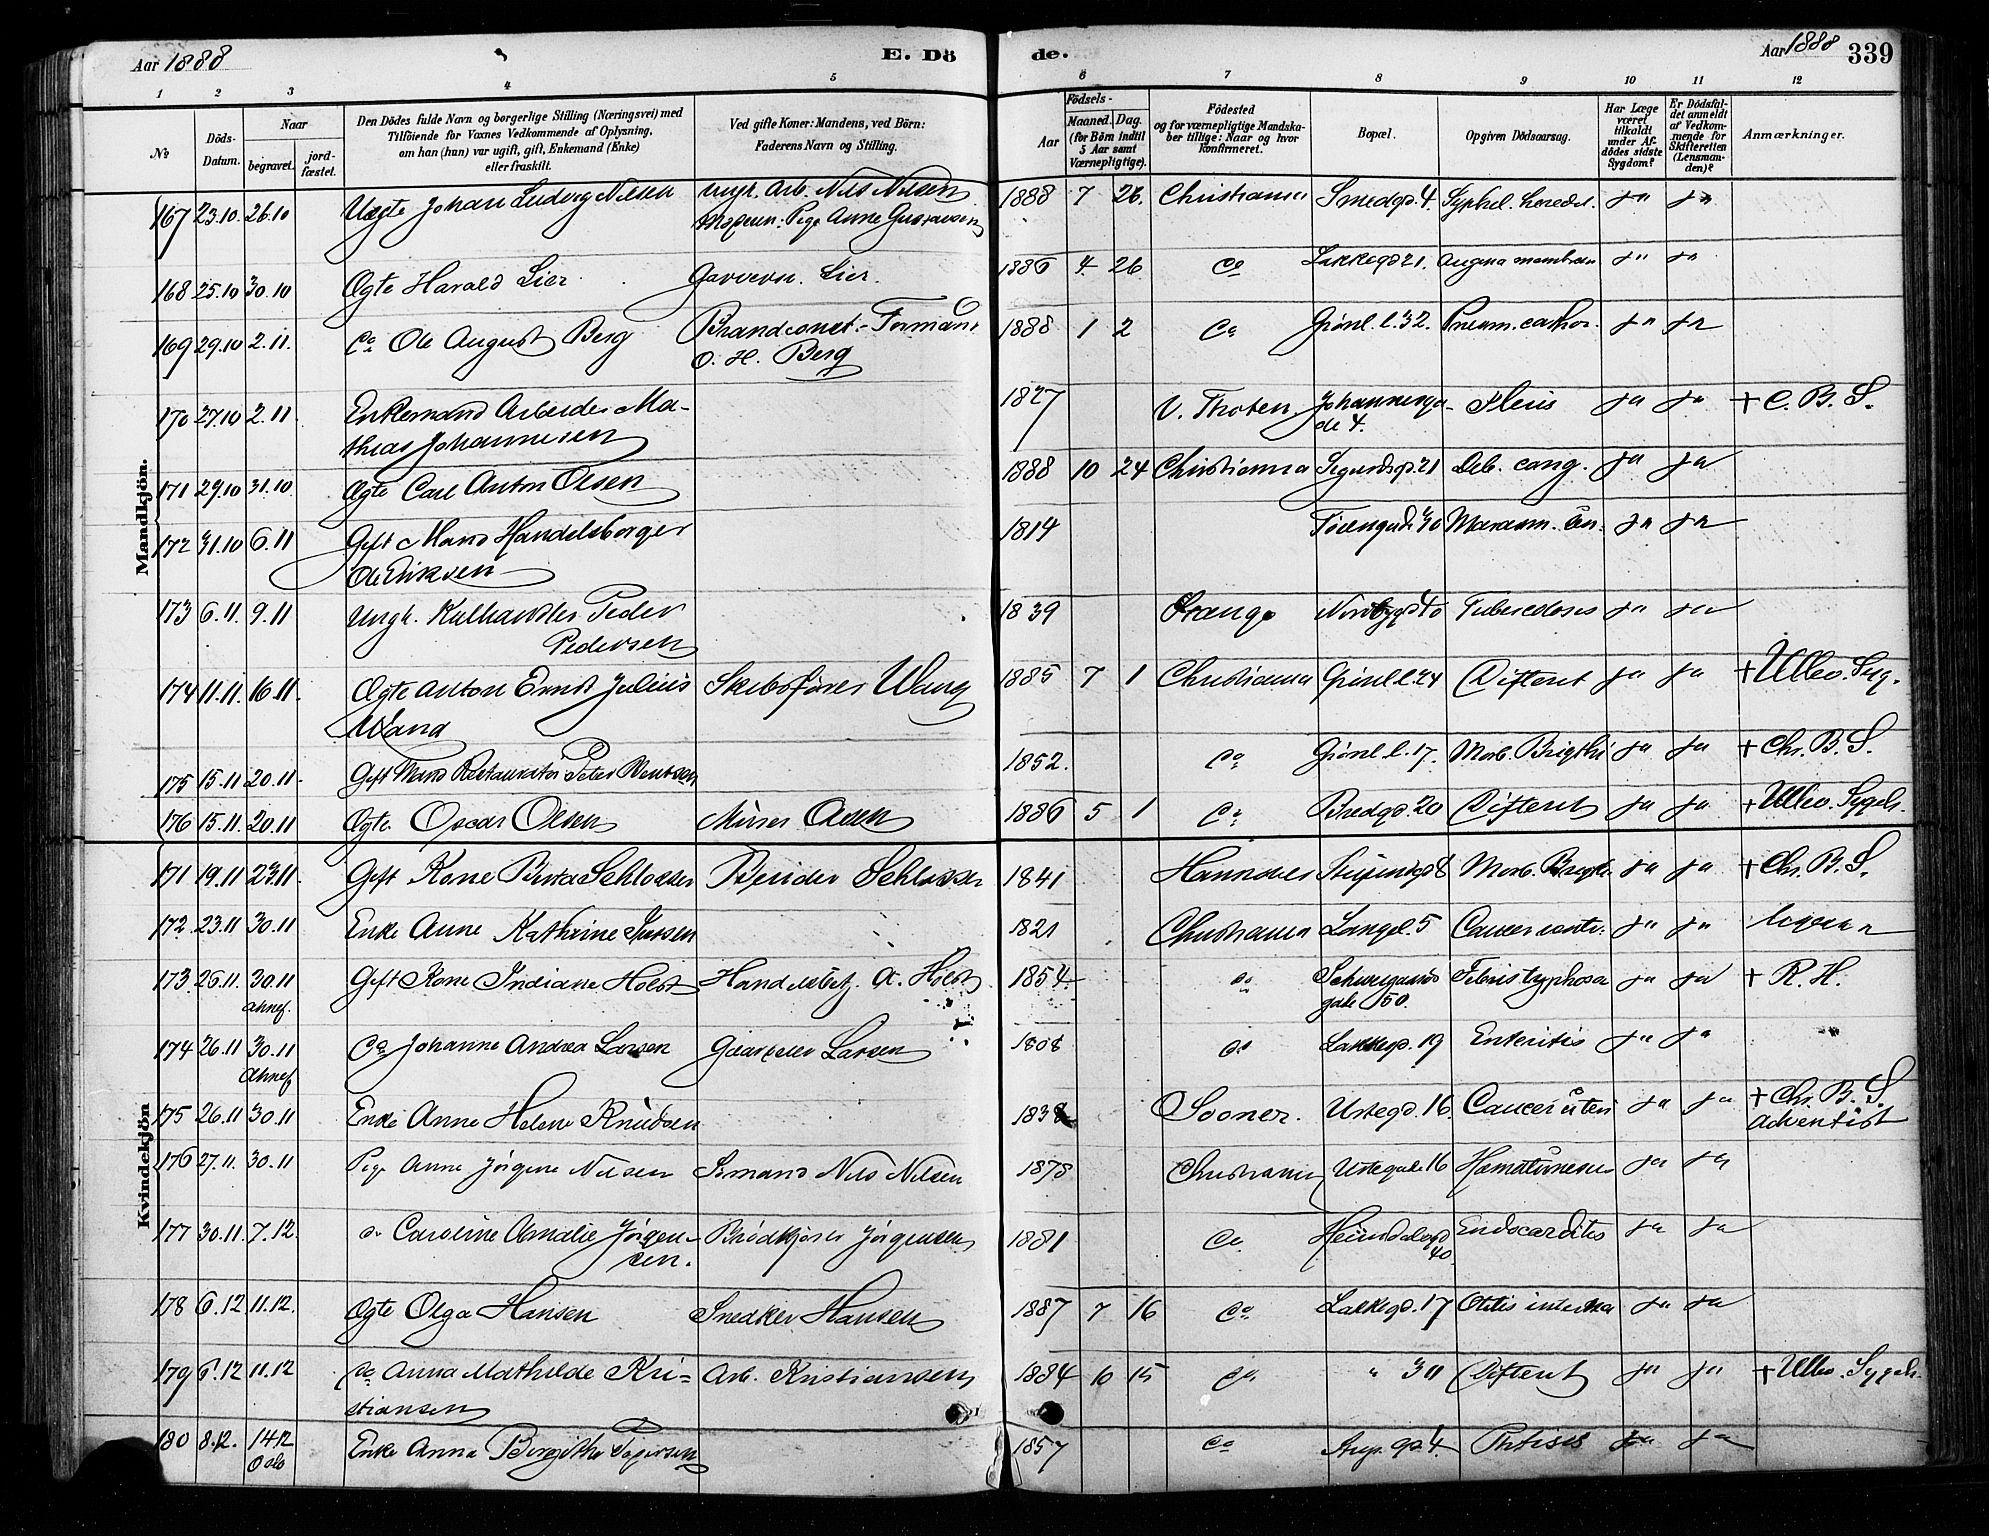 Aar 1888
E. Dö
de.
Aar 1888
339
1 2 3 4 5 6 7 8 9 10 11 12
№
Döds-
Datum.
Naar
begravet.
jord-
fæstet.
Den Dödes fulde Navn og borgerlige Stilling (Næringsvei) med
Tilföiende for Voxnes Vedkommende af Oplysning,
om han (hun) var ugift, gift, Enkemand (Enke)
eller fraskilt.
Ved gifte Koner: Mandens, ved Börn:
Faderens Navn og Stilling.
Födsels-
Aar
Maaned. Dag.
(for Börn indtil
5 Aar samt
Værnepligtige).
Födested
og for værnepligtige Mandska-
ber tillige: Naar og hvor
konfirmeret.
Bopæl.
Opgiven Dödsaarsag.
Har Læge
været
tilkaldt
under Af-
dödes sidste
Sygdom?
Er Dödsfal-
det anmeldt
af Vedkom-
mende for
Skifteretten
(Lensman-
den)?
Anmærkninger.
Mandkjön.
167 23.10. 26.10 Uægte Johan Ludvig Nilsen Ungk. Arb. Nils Nilsen 1888 7 26. Christiania Smedgd. 4. Syphil. hered. ja ja
Pige Anne Gustavsen
168 25.10 30.10 Ægte Harald Lier Garversv. Lier. 1886 4 26 do Lakkegd 21. Angina membran ja ja
169 29.10 2.11. do Ole August Berg Brandconst.-Formand 1888 1 2 do Grönl. l. 32. Pneum. cathar. ja ja
O. H. Berg
170 27.10 2.11 Enkemand Arbeider Ma- 1827 V. Thoten Johannesga- Pleuris ja ja + C. B. S.
thias Johannesen de 4.
171 29.10 31.10 Ægte Carl Anton Olsen 1888 10 24 Christiania Sigurdsgd. 21 Deb. cong. ja ja
172 31.10 6.11 Gift Mand Handelsborger 1814 Töiengad. 30 Marasm. sen. ja ja
Ole Eriksen
173 6.11. 9.11 Ungk. Kulhandler Peder 1839 Vrange Nordbygd 40 Tuberculosis ja ja
Pedersen
174 11.11. 16.11 Ægte Anton Ernst Julius Skibsförer Wang 1885 7 1 Christiania Grönl. l. 24 Difterit ja ja + Ullev. Syg.
Wang
175 15.11 20.11 Gift Mand Restauratör Peter 1852. do Grönl. l. 17. Morb. Brigthi ja ja + Chr. B. S.
176 15.11. 20.11 Ægte Oscar Olsen Murer Olsen 1886 5 1 do Bredgd. 20 Difterit ja ja + Ullev. Sygeh.
Kvindekjön
171 19.11 23.11. Gift Kone Berta Schlosser Schlosser 1841 Hannover 8 Morb. Brigth. ja ja + Chr. B. S.
172 23.11 30.11 Enke Anne Kathrine Iversen 1821 Christiania Langl. 5 Cancer ventr. ja ja
173 26.11 30.11 Gift Kone Indiane Holst Handelsbetj. A. Holst 1854 do Schweigaards Febris typhosa ja ja + R. H.
gade 50
174 26.11 30.11 do Johanne Andrea Larsen Larsen 1808 do Lakkegd. 19 Enteritis ja ja
175 26.11 30.11 Enke Anne Helene Knudsen 1838 Sooner. Urtegd. 16. Cancer uteri ja ja + Chr. B. S.
Adventist
176 27.11. 30.11 Pige Anne Jörgine Nilsen Sömand Nils Nilsen 1878 Christiania Urtegade 16 ja ja
177 30.11 7.12. do Caroline Amalie Jörgen- Brödkjörer Jörgensen 1881 do Heimdalsgd Endocarditis ja ja
sen. 40
178 6.12 11.12. Ægte Olga Hansen Snedker Hansen 1887 7 16 do Lakkegd. 17 Otitis interna ja ja
179 6.12 11.12 do Anna Mathilde Kri- Arb. Kristiansen 1884 10 15 do " 30 Difterit ja ja + Ullev. Sygeh.
stiansen
180 8.12. 14.12 Enke Anna Birgithe 1857 do Phtisis ja ja
Oslo